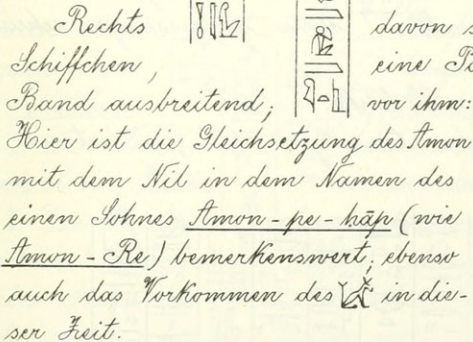 Rechts davon s
Schiffchen, eine P
Band ausbreitend; vor ihm:
Hier ist die Gleichsetzung des Amon
mit dem Nil in dem Namen des
einen Sohnes Amon-pe-hāp (wie
Amon-Re) bemerkenswert; ebenso
auch das Vorkommen des in die-
ser Zeit.